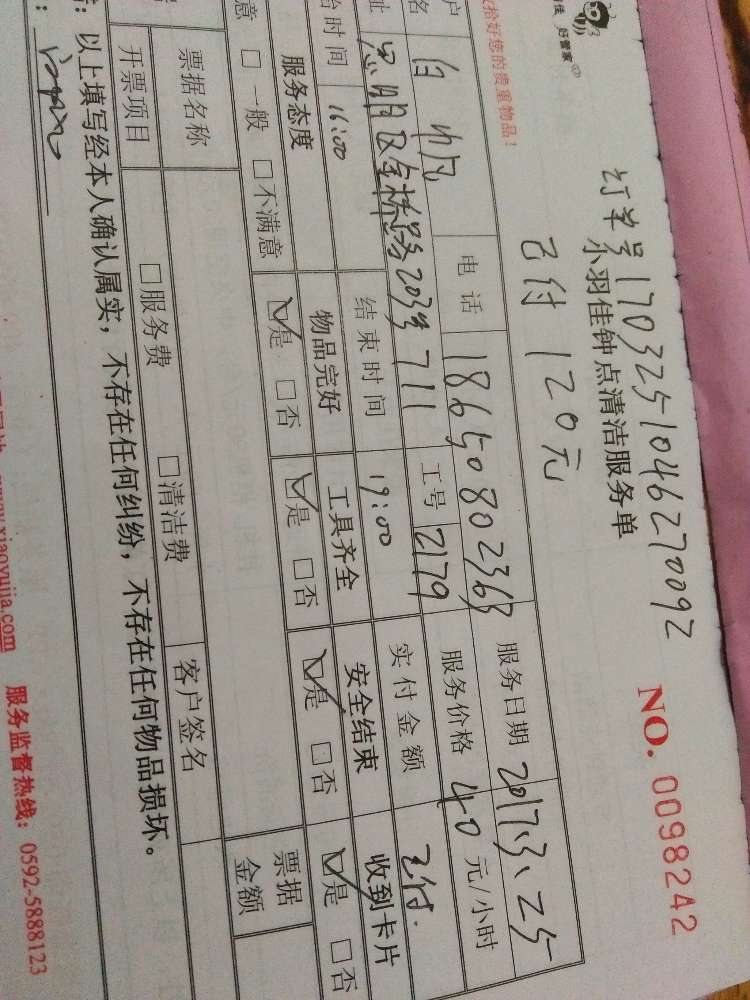 好管家
订单号1703251046270092
小羽佳钟点清洁服务单
已付 120元
NO. 0098242
收拾好您的贵重物品！
户 白帆 电话 18650802363 服务日期 2017、3、25
址 思明区金桥路203号711 工号 2179 服务价格 40元/小时
始时间 16:00 结束时间 19:00 实付金额 已付.
服务态度 物品完好 工具齐全 安全结束 收到卡片
意 □一般 □不满意 ☑是 □否 ☑是 □否 ☑是 □否 ☑是 □否
票据名称 票据金额
开票项目 □服务费 □清洁费 客户签名
：以上填写经本人确认属实，不存在任何纠纷，不存在任何物品损坏。
www.xiaoyujia.com 服务监督热线：0592-5888123